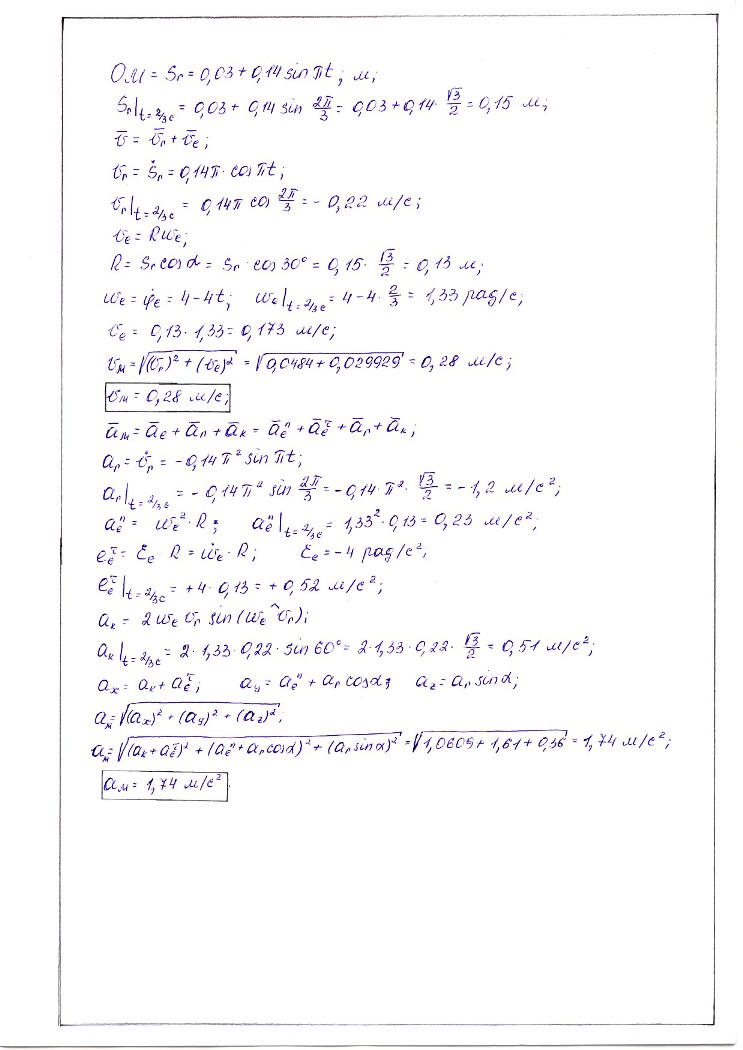 OM = Sr = 0,03 + 0,14 sin πt; м;
Sr|t=2/3c = 0,03 + 0,14 sin 2π/3 = 0,03 + 0,14 · √3/2 = 0,15 м;
v̄ = v̄r + v̄e;
vr = Ṡr = 0,14π · cos πt;
vr|t=2/3c = 0,14π cos 2π/3 = - 0,22 м/с;
ve = Rωe;
R = Sr cos α = Sr · cos 30° = 0,15 · √3/2 = 0,13 м;
ωe = φ̇e = 4-4t; ωe|t=2/3c = 4-4 · 2/3 = 1,33 рад/с;
ve = 0,13 · 1,33 = 0,173 м/с;
vм = √((vr)² + (ve)²) = √(0,0484 + 0,029929) = 0,28 м/с;
vм = 0,28 м/с;
āм = āe + ār + āк = āeⁿ + āeᵗ + ār + āк;
ar = v̇r = -0,14π² sin πt;
ar|t=2/3c = - 0,14π² sin 2π/3 = -0,14 · π² · √3/2 = -1,2 м/с²;
aeⁿ = ωe² · R; aeⁿ|t=2/3c = 1,33² · 0,13 = 0,23 м/с²;
eeᵗ = Ee · R = ω̇e · R; Ee = -4 рад/с²;
eeᵗ|t=2/3c = +4 · 0,13 = +0,52 м/с²;
aк = 2 ωe vr sin(ωe^vr);
aк|t=2/3c = 2 · 1,33 · 0,22 · sin 60° = 2 · 1,33 · 0,22 · √3/2 = 0,51 м/с²;
ax = aк + aeᵗ; ay = aeⁿ + ar cos α; az = ar sin α;
aм = √((ax)² + (ay)² + (az)²);
aм = √((aк + aeᵗ)² + (aeⁿ + ar cos α)² + (ar sin α)²) = √(1,0609 + 1,61 + 0,36) = 1,74 м/с²;
aм = 1,74 м/с².